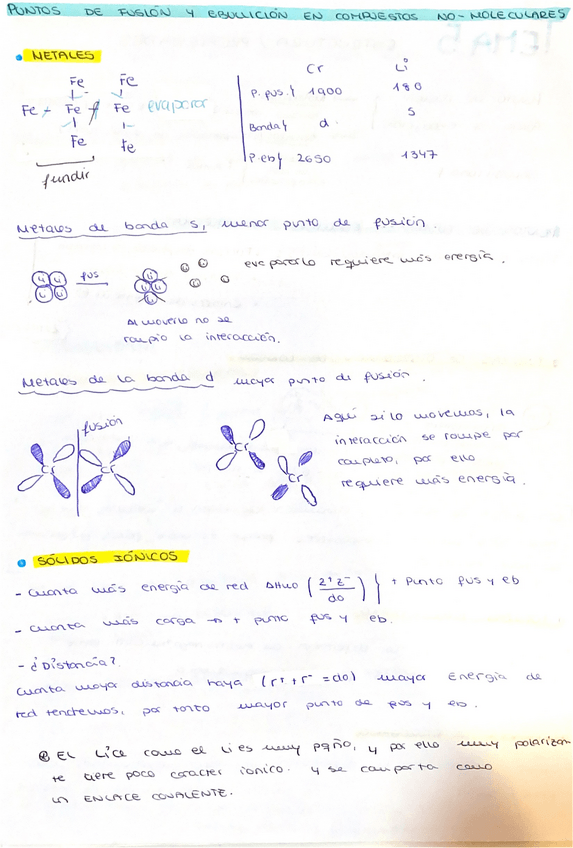 PUNTOS DE FUSIÓN Y EBULLICIÓN EN COMPUESTOS NO-MOLECULARES
METALES
Fe Fe
Fe Fe Fe evaporar
Fe Fe
fundir
Cr Li
P. fus. 1900 180
Banda d s
P. eb 2650 1347
Metales de banda s, menor punto de fusión.
Li Li fus Li evaporarlo requiere más energía.
Li Li Li Li
Al moverlo no se
rompió la interacción.
Metales de la banda d mayor punto de fusión.
fusión
Cr Cr
Cr
Cr
Aquí si lo movemos, la
interacción se rompe por
completo, por ello
requiere más energía.
SÓLIDOS IÓNICOS
- Cuanta más energía de red ΔHuo (z+z-/do) } + Punto fus y eb
- Cuanta más carga → + punto fus y eb.
- ¿Distancia?
Cuanta mayor distancia haya (r+ + r- = do) mayor Energía de
red tendremos, por tanto mayor punto de fus y eb.
El LiCl como el Li es muy pqño, y por ello muy polarizan
te tiene poco caracter ionico. y se comporta como
un ENLACE COVALENTE.